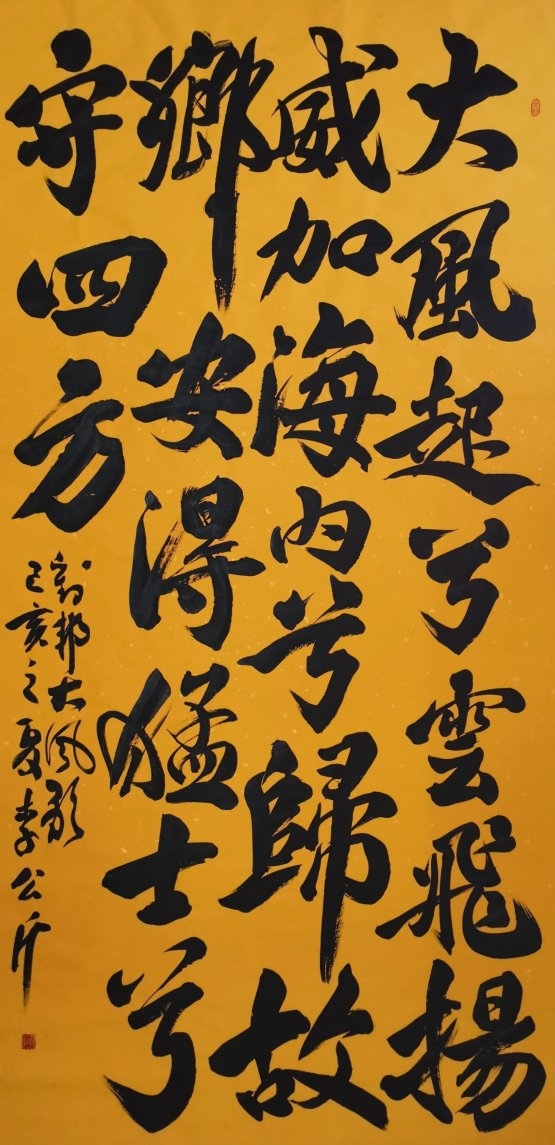 大風起兮雲飛揚
威加海内兮歸故
鄉安得猛士兮
守四方
劉邦大風歌
己亥之夏李公斤